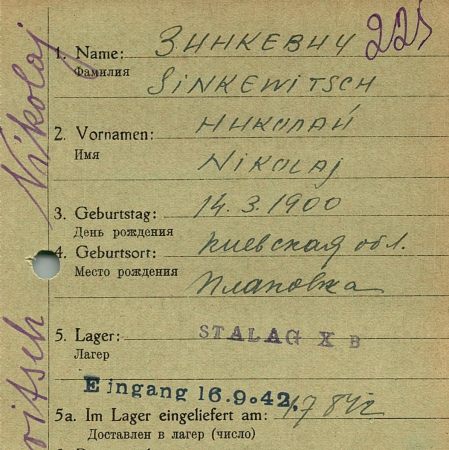 Nikolaj
1. Name: ЗИНКЕВИЧ 225
Фамилия SINKEWITSCH
2. Vornamen: НИКОЛАЙ
Имя NIKOLAJ
3. Geburtstag: 14.3.1900
День рождения
4. Geburtsort: Киевская обл.
Место рождения Плановка
5. Lager: STALAG X B
Лагер
Eingang 16.9.42.
5a. Im Lager eingeliefert am:
Доставлен в лагер (число)